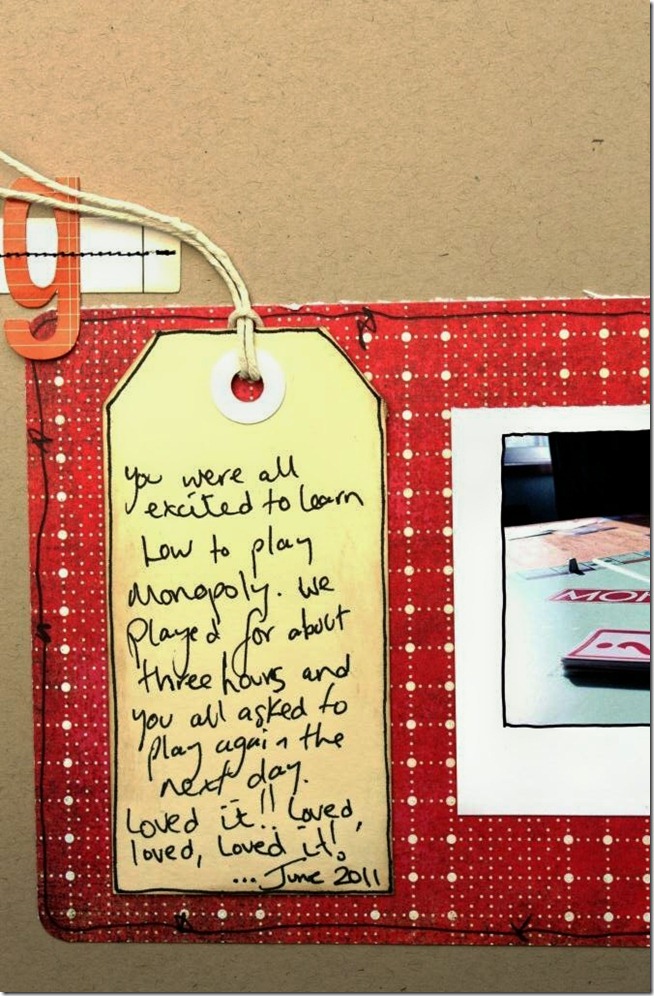 g
you were all
excited to learn
how to play
Monopoly. We
played for about
three hours and
you all asked to
play again the
next day.
Loved it!! Loved,
loved, Loved it!
... June 2011
MO
?